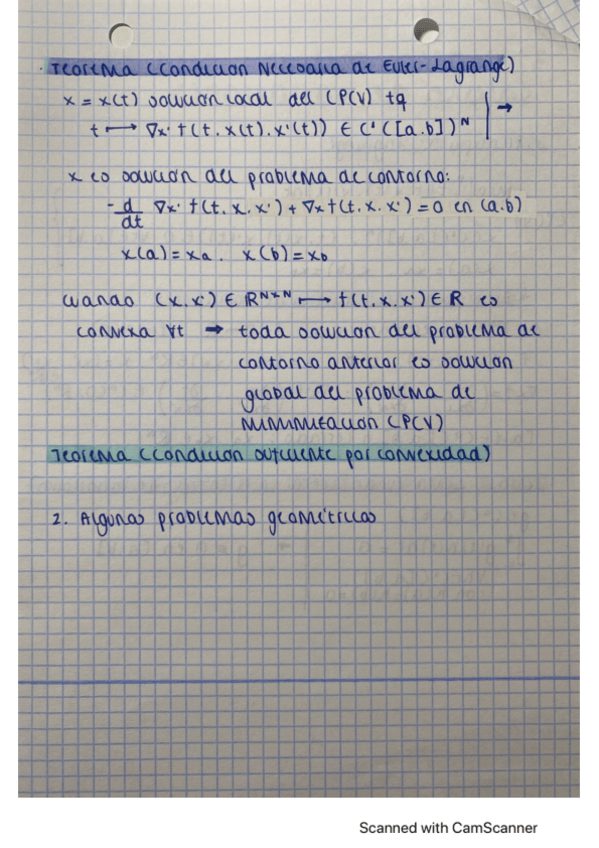 · Teorema (Condicion Necesaria de Euler-Lagrange)
x = x(t) solucion local del (PCV) tq
t ⟼ ∇x' f(t, x(t), x'(t)) ∈ C¹([a,b])ᴺ | →
x es solucion del problema de contorno:
-d/dt ∇x' f(t, x, x') + ∇x f(t, x, x') = 0 en (a,b)
x(a) = xa, x(b) = xb
cuando (x, x') ∈ ℝᴺˣᴺ ⟼ f(t, x, x') ∈ ℝ es
convexa ∀t → toda solucion del problema de
contorno anterior es solucion
global del problema de
minimizacion (PCV)
Teorema (Condicion suficiente por convexidad)
2. Algunos problemas geométricos
Scanned with CamScanner